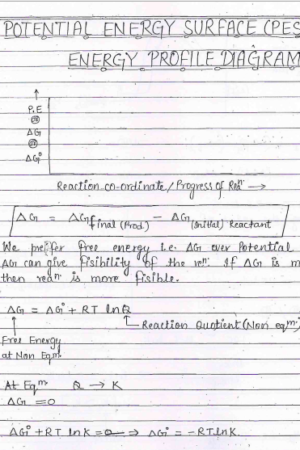 POTENTIAL ENERGY SURFACE (PES
ENERGY PROFILE DIAGRAM
P.E
or
ΔG
or
ΔG°
Reaction co-ordinate / Progress of Reaⁿ →
ΔG = ΔG final (Prod.) − ΔG (Initial) Reactant
We preffer free energy i.e. ΔG over Potential
ΔG can give fisibility of the reⁿ. If ΔG is m
then reaⁿ is more fisible.
ΔG = ΔG° + RT lnQ
Reaction Quotient (Non eqᵐ)
Free Energy
at Non Eqᵐ
At Eqᵐ Q → K
ΔG = 0
ΔG° + RT ln K = 0 ⇒ ΔG° = −RT ln K